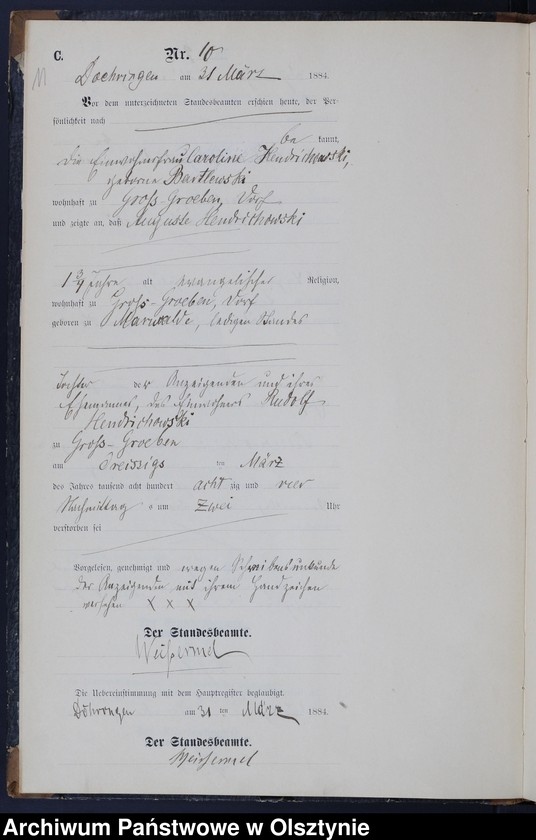 C. Nr. 10
11
Doehringen am 31 März 1884.
Vor dem unterzeichneten Standesbeamten erschien heute, der Per-
sönlichkeit nach
be kannt,
die Einwohnerfrau Caroline Hendrichowski,
geborne Bartlewski
wohnhaft zu Groß-Groeben, Dorf
und zeigte an, daß Auguste Hendrichowski
1 3/4 Jahre alt evangelischer Religion,
wohnhaft zu Groß-Groeben, Dorf
geboren zu Marwalde, ledigen Standes
Tochter der Anzeigenden und ihres
Ehemannes, des Einwohners Rudolf
Hendrichowski
zu Groß-Groeben
am dreissigs ten März
des Jahres tausend acht hundert acht zig und vier
Nachmittag s um zwei Uhr
verstorben sei
Vorgelesen, genehmigt und wegen Schreibensunkunde
der Anzeigenden mit ihrem Handzeichen
versehen X X X
Der Standesbeamte.
Weißermel
Die Uebereinstimmung mit dem Hauptregister beglaubigt.
Döhringen am 31 ten März 1884.
Der Standesbeamte.
Weißermel
Archiwum Państwowe w Olsztynie